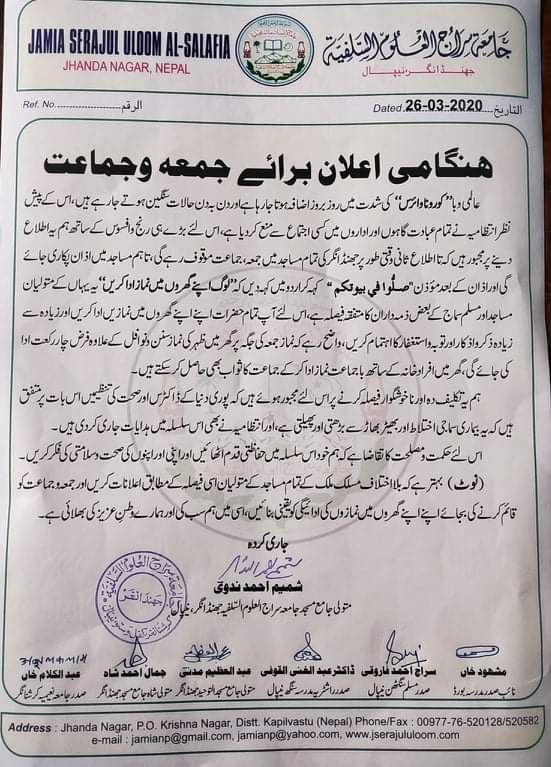 JAMIA SERAJUL ULOOM AL-SALAFIA
JHANDA NAGAR, NEPAL
جامعة سراج العلوم السلفية
جھنڈا نگر نیپال
Ref. No. الرقم
Dated 26-03-2020 التاريخ
هنگامی اعلان برائے جمعه وجماعت
عالمی وبا "کورونا وائرس" کی شدت میں روز بروز اضافہ ہوتا جا رہا ہے اور دن بہ دن حالات سنگین ہوتے جا رہے ہیں، اس کے پیش
نظر انتظامیہ نے تمام عبادت گاہوں اور اداروں میں کسی اجتماع سے منع کر دیا ہے، اس لئے بڑے ہی رنج و افسوس کے ساتھ ہم یہ اطلاع
دینے پر مجبور ہیں کہ تا اطلاع ثانی وقتی طور پر جھنڈا نگر کی تمام مساجد میں جمعہ، جماعت موقوف رہے گی، تاہم مساجد میں اذان پکاری جائے
گی اور اذان کے بعد مؤذن "صلُّوا في بيوتكم" کہہ کر اردو میں کہہ دیں کہ "لوگ اپنے گھروں میں نماز ادا کریں" یہ یہاں کے متولیان
مساجد اور مسلم سماج کے بعض ذمہ داران کا متفقہ فیصلہ ہے، اس لئے آپ تمام حضرات اپنے اپنے گھروں میں نمازیں ادا کریں اور زیادہ سے
زیادہ ذکر و اذکار اور توبہ و استغفار کا اہتمام کریں، واضح رہے کہ نماز جمعہ کی جگہ پر گھر میں ظہر کی نماز سنن و نوافل کے علاوہ فرض چار رکعت ادا
کی جائے گی، گھر میں افراد خانہ کے ساتھ با جماعت نماز ادا کر کے جماعت کا ثواب بھی حاصل کر سکتے ہیں۔
ہم یہ تکلیف دہ اور ناخوشگوار فیصلہ کرنے پر اس لئے مجبور ہوئے ہیں کہ پوری دنیا کے ڈاکٹرس اور صحت کی تنظیمیں اس بات پر متفق
ہیں کہ یہ بیماری سماجی اختلاط اور بھیڑ بھاڑ سے بڑھتی اور پھیلتی ہے، اور انتظامیہ نے بھی اس سلسلہ میں ہدایات جاری کر دی ہیں۔
اس لئے حکمت و مصلحت کا تقاضا ہے کہ ہم خود اس سلسلہ میں حفاظتی قدم اٹھائیں اور اپنی اور اپنوں کی صحت و سلامتی کی فکر کریں۔
(نوٹ) بہتر ہے کہ بلا اختلاف مسلک ملک کے تمام مساجد کے متولیان اسی فیصلہ کے مطابق اعلانات کریں اور جمعہ و جماعت کو
قائم کرنے کی بجائے اپنے اپنے گھروں میں نمازوں کی ادائیگی کو یقینی بنائیں، اسی میں ہم سب کی اور ہمارے وطن عزیز کی بھلائی ہے۔
جاری کردہ
شمیم احمد ندوی
متولی جامع مسجد جامعہ سراج العلوم السلفیہ جھنڈا نگر، نیپال
مشهود خاں سراج احمد فاروقی ڈاکٹر عبد الغنی القوفی عبد العظیم مدنی جمال احمد شاہ عبد الکلام خاں
نائب صدر مدرسہ بورڈ صدر مسلم سنگھٹن نیپال صدر راشٹریہ مدرسہ سنگھ نیپال متولی جامع مسجد التوحید جھنڈا نگر متولی شاہ جامع مسجد جھنڈا نگر صدر جامعہ نعیمیہ کرشنا نگر
Address : Jhanda Nagar, P.O. Krishna Nagar, Distt. Kapilvastu (Nepal) Phone/Fax : 00977-76-520128/520582
e-mail : jamianp@gmail.com, jamianp@yahoo.com, www.jserajululoom.com